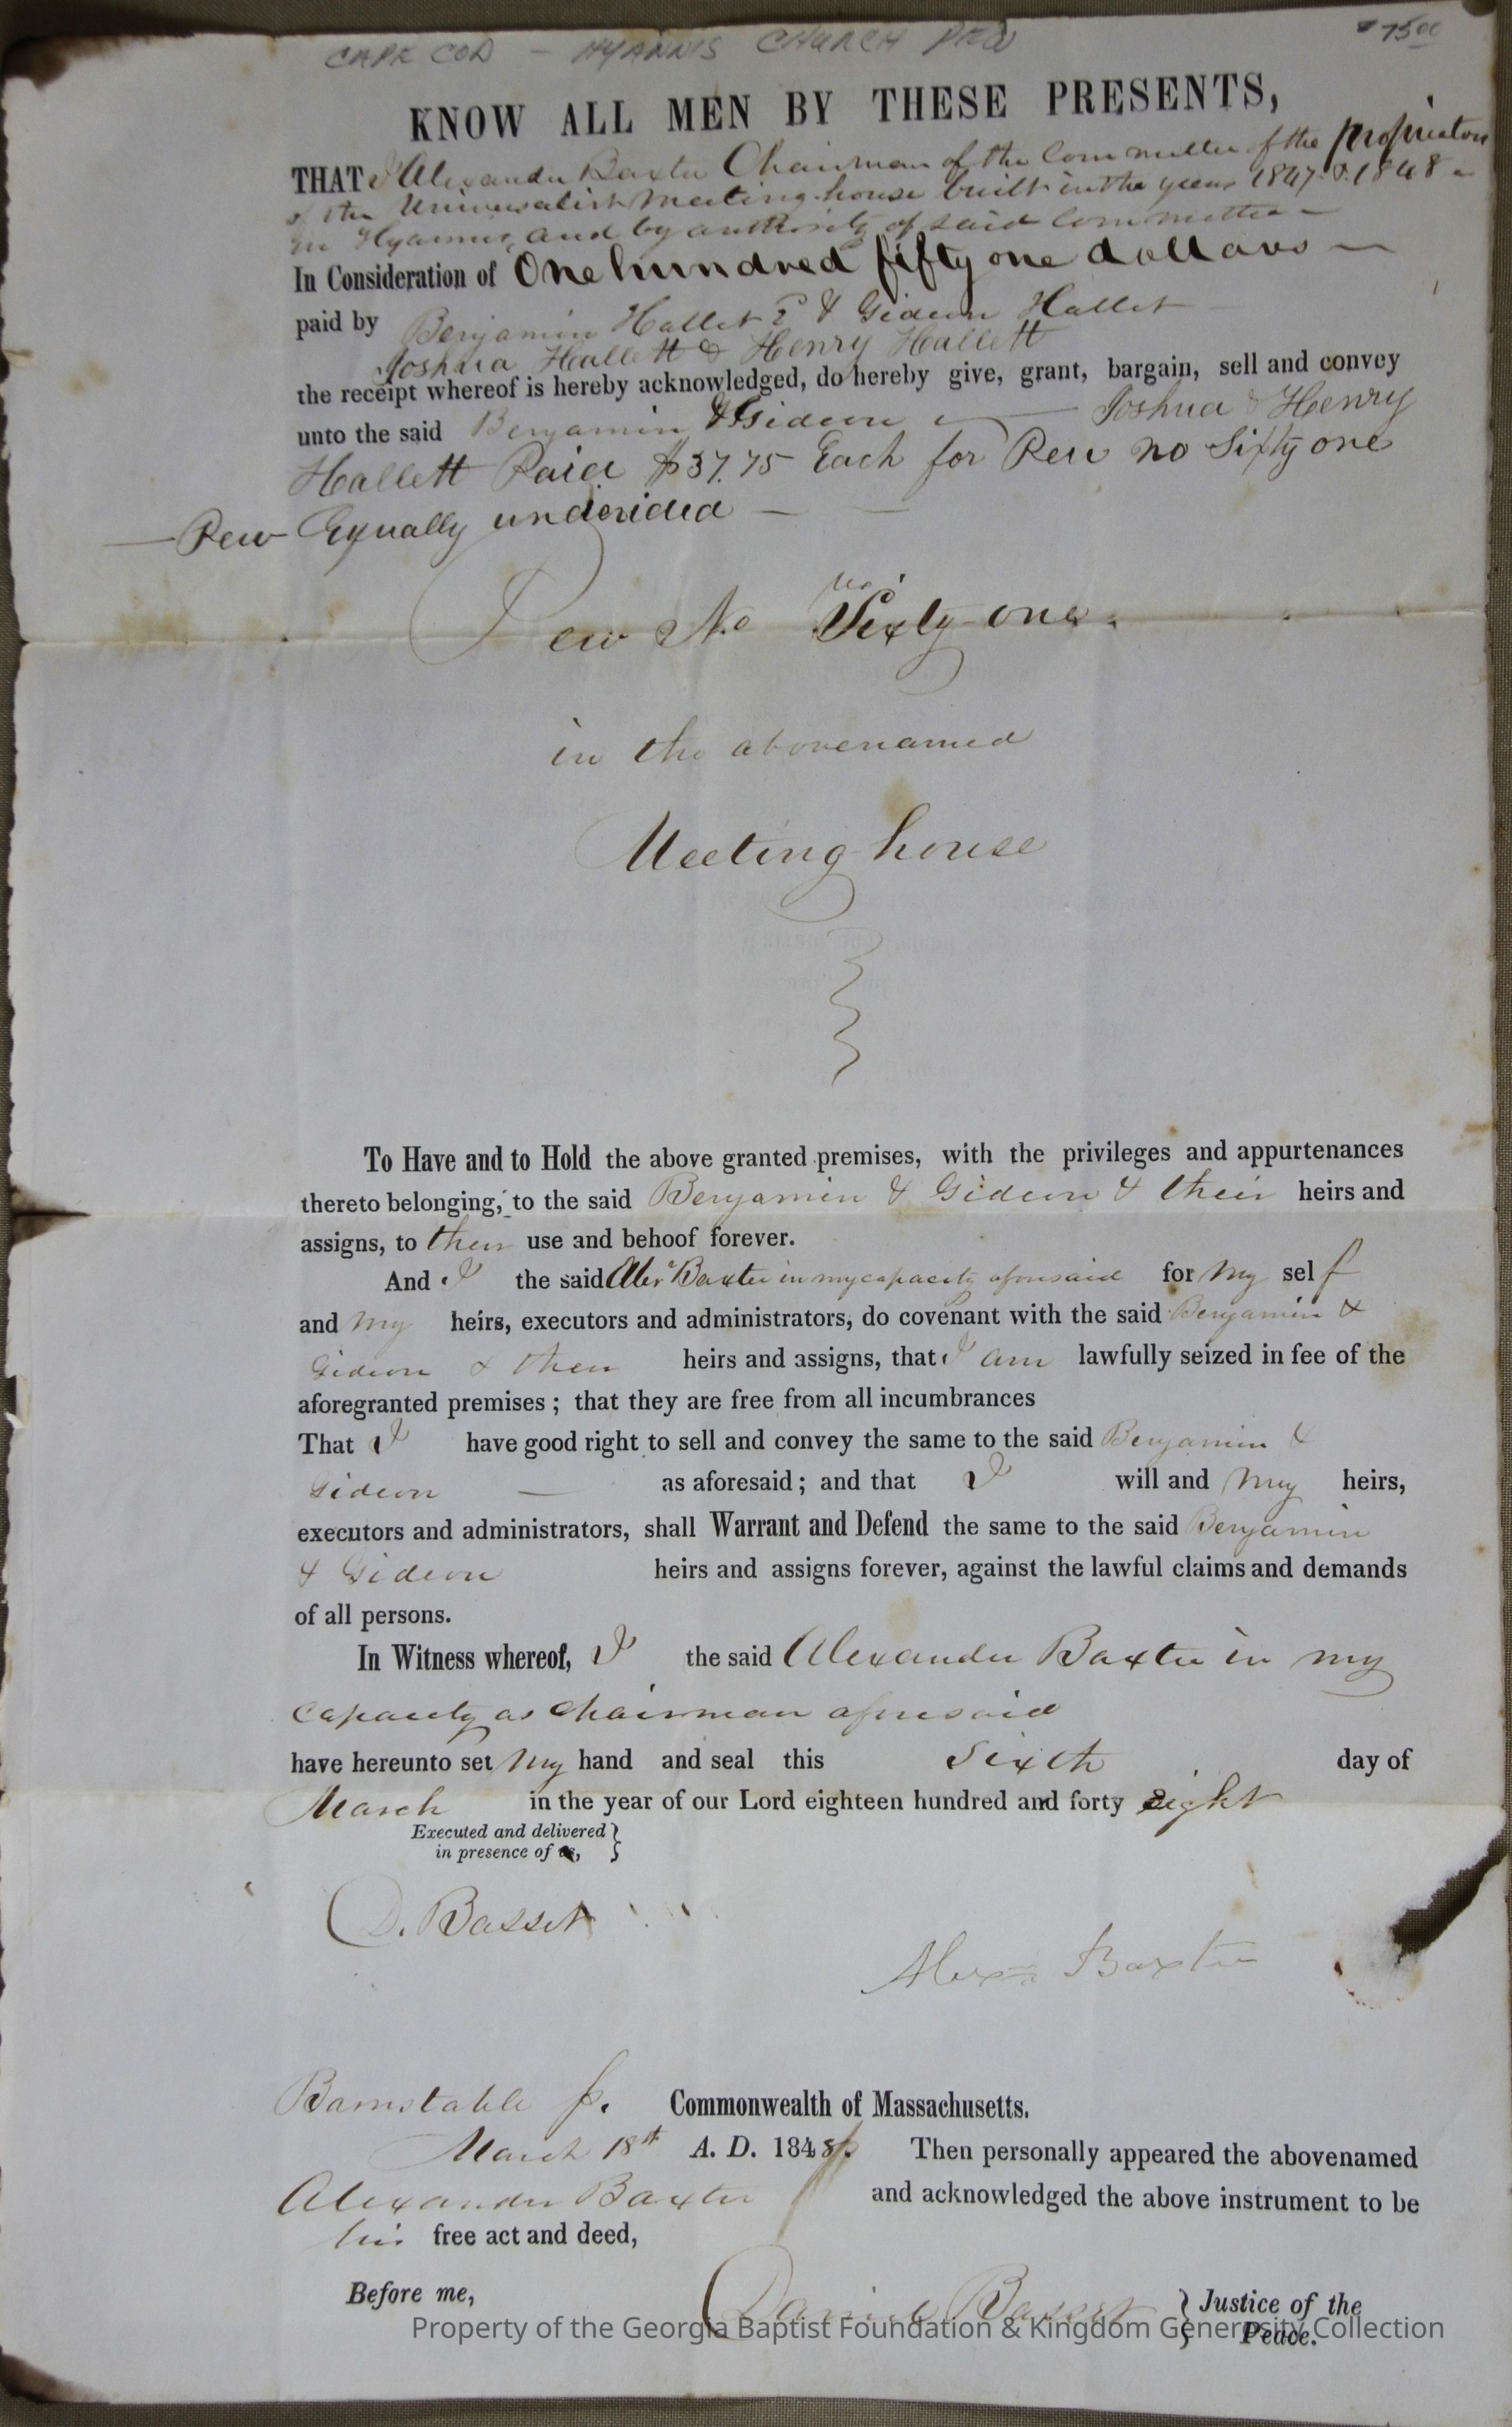 CAPE COD - HYANNIS CHURCH PEW
$75.00
KNOW ALL MEN BY THESE PRESENTS,
THAT I Alexander Baxter Chairman of the Committee of the proprietors
of the Universalist Meeting-house built in the years 1847 & 1848 -
in Hyannis, and by authority of said Committee -
In Consideration of One hundred fifty one dollars —
paid by Benjamin Hallet & Gideon Hallet
Joshua Hallett & Henry Hallett
the receipt whereof is hereby acknowledged, do hereby give, grant, bargain, sell and convey
unto the said Benjamin & Gideon — Joshua & Henry
Hallett Paid $37.75 Each for Pew no Sixty one
— Pew Equally undivided —
Pew No Sixty-one.
in the abovenamed
Meeting-house
To Have and to Hold the above granted premises, with the privileges and appurtenances
thereto belonging, to the said Benjamin & Gideon & their heirs and
assigns, to their use and behoof forever.
And I the said Alexr Baxter in my capacity aforesaid for my self
and my heirs, executors and administrators, do covenant with the said Benjamin &
Gideon & their heirs and assigns, that I am lawfully seized in fee of the
aforegranted premises; that they are free from all incumbrances
That I have good right to sell and convey the same to the said Benjamin &
Gideon — as aforesaid; and that I will and my heirs,
executors and administrators, shall Warrant and Defend the same to the said Benjamin
& Gideon heirs and assigns forever, against the lawful claims and demands
of all persons.
In Witness whereof, I the said Alexander Baxter in my
capacity as chairman aforesaid
have hereunto set my hand and seal this Sixth day of
March in the year of our Lord eighteen hundred and forty eight
Executed and delivered
in presence of
D. Basset
Alexr Baxter
Barnstable ss. Commonwealth of Massachusetts.
March 18th A. D. 1848. Then personally appeared the abovenamed
Alexander Baxter and acknowledged the above instrument to be
his free act and deed,
Before me, Daniel Basset } Justice of the
Peace.
Property of the Georgia Baptist Foundation & Kingdom Generosity Collection